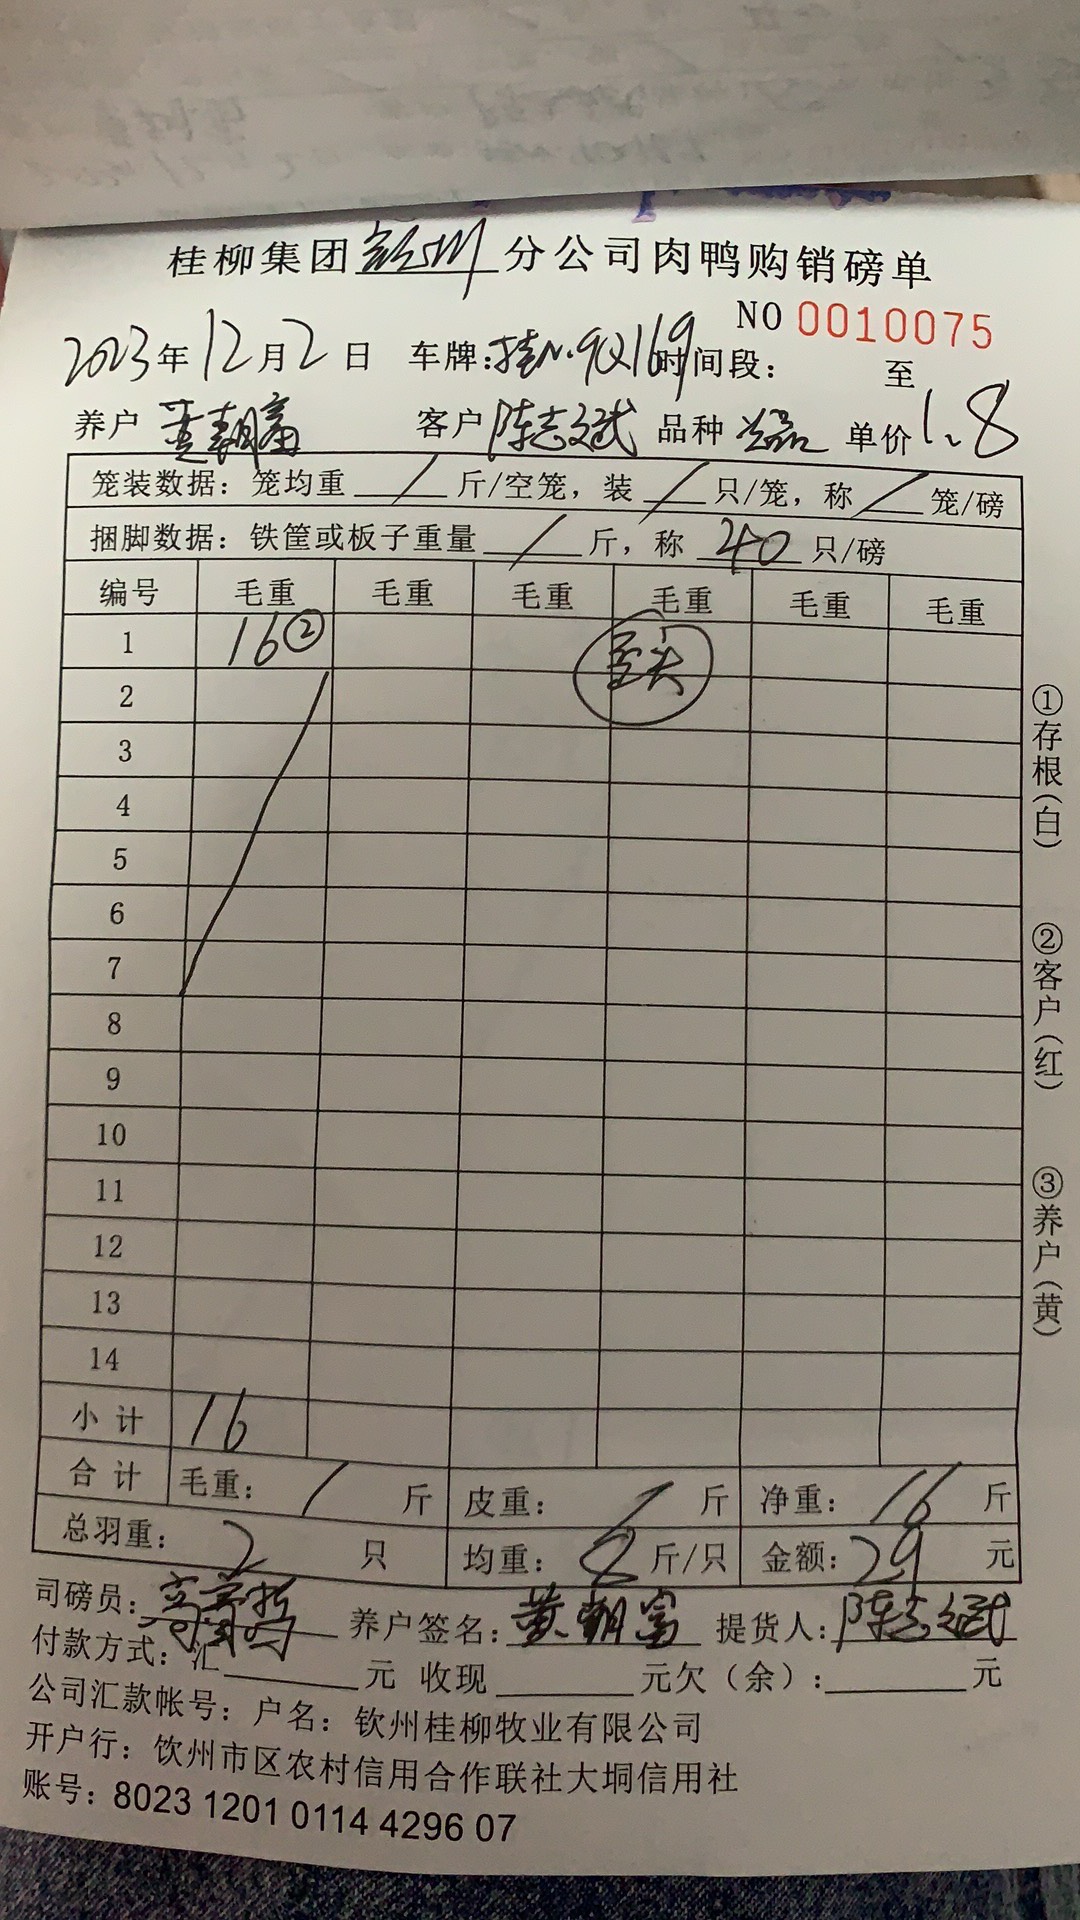 桂柳集团钦州分公司肉鸭购销磅单
NO 0010075
2023年12月2日 车牌:桂N.9Q169时间段: 至
养户 黄朝富 客户 陈志斌 品种 单价 1.8
笼装数据:笼均重 / 斤/空笼,装 / 只/笼,称 / 笼/磅
捆脚数据:铁筐或板子重量 / 斤,称 40 只/磅
编号 毛重 毛重 毛重 毛重 毛重 毛重
1 16②
2
3
4
5
6
7
8
9
10
11
12
13
14
小计 16
合计 毛重: / 斤 皮重: / 斤 净重: 16 斤
总羽重: 2 只 均重: 8 斤/只 金额: 29 元
司磅员: 养户签名: 黄朝富 提货人: 陈志斌
付款方式:汇 元 收现 元欠(余): 元
公司汇款帐号:户名:钦州桂柳牧业有限公司
开户行:钦州市区农村信用合作联社大垌信用社
账号:8023 1201 0114 4296 07
①存根(白)
②客户(红)
③养户(黄)